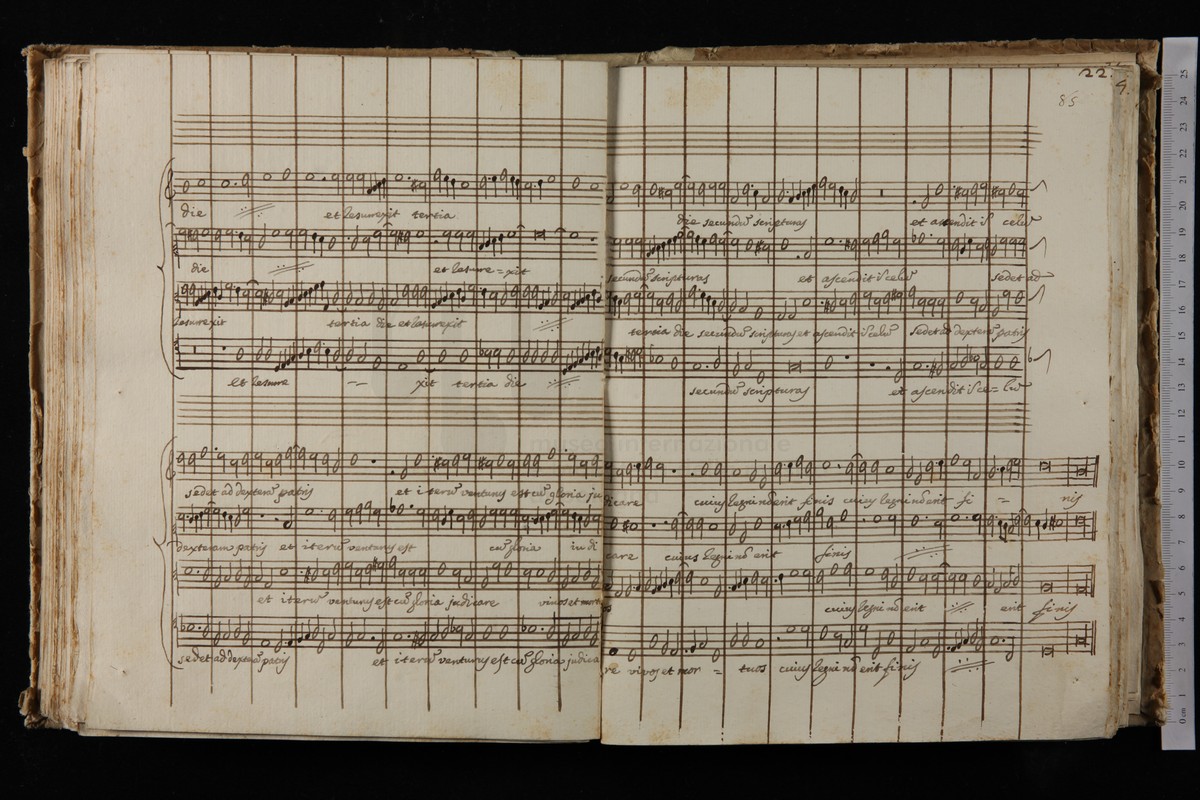 22.
9.
85
die et resurexit tertia die secundũ scripturas et ascendit ĩ celũ
die et resure = xit secundũ scripturas et ascendit ĩ celũ sedet ad
resurexit tertia die et resurexit tertia die secundũ scripturas et ascendit ĩ celũ sedet ad dexterã patris
et resure -- xit tertia die secundũ scripturas et ascendit ĩ ce = lũ
museo internazionale
sedet ad dexterã patris et iterũ venturus est cũ gloria judicare cuius regni nõ erit finis cuius regni nõ erit fi = nis
dexteram patris et iterũ venturus est cũ gloria iudi care cuius regni nõ erit finis
et iterũ venturus est cũ gloria judicare vivos et mortuos cuius regni nõ erit erit finis
sedet ad dexterã patris et iterũ venturus est cũ gloria judicare vivos et mor = tuos cuius regni nõ erit finis
25
24
23
22
21
20
19
18
17
16
15
14
13
12
11
10
9
8
7
6
5
4
3
2
1
0 cm